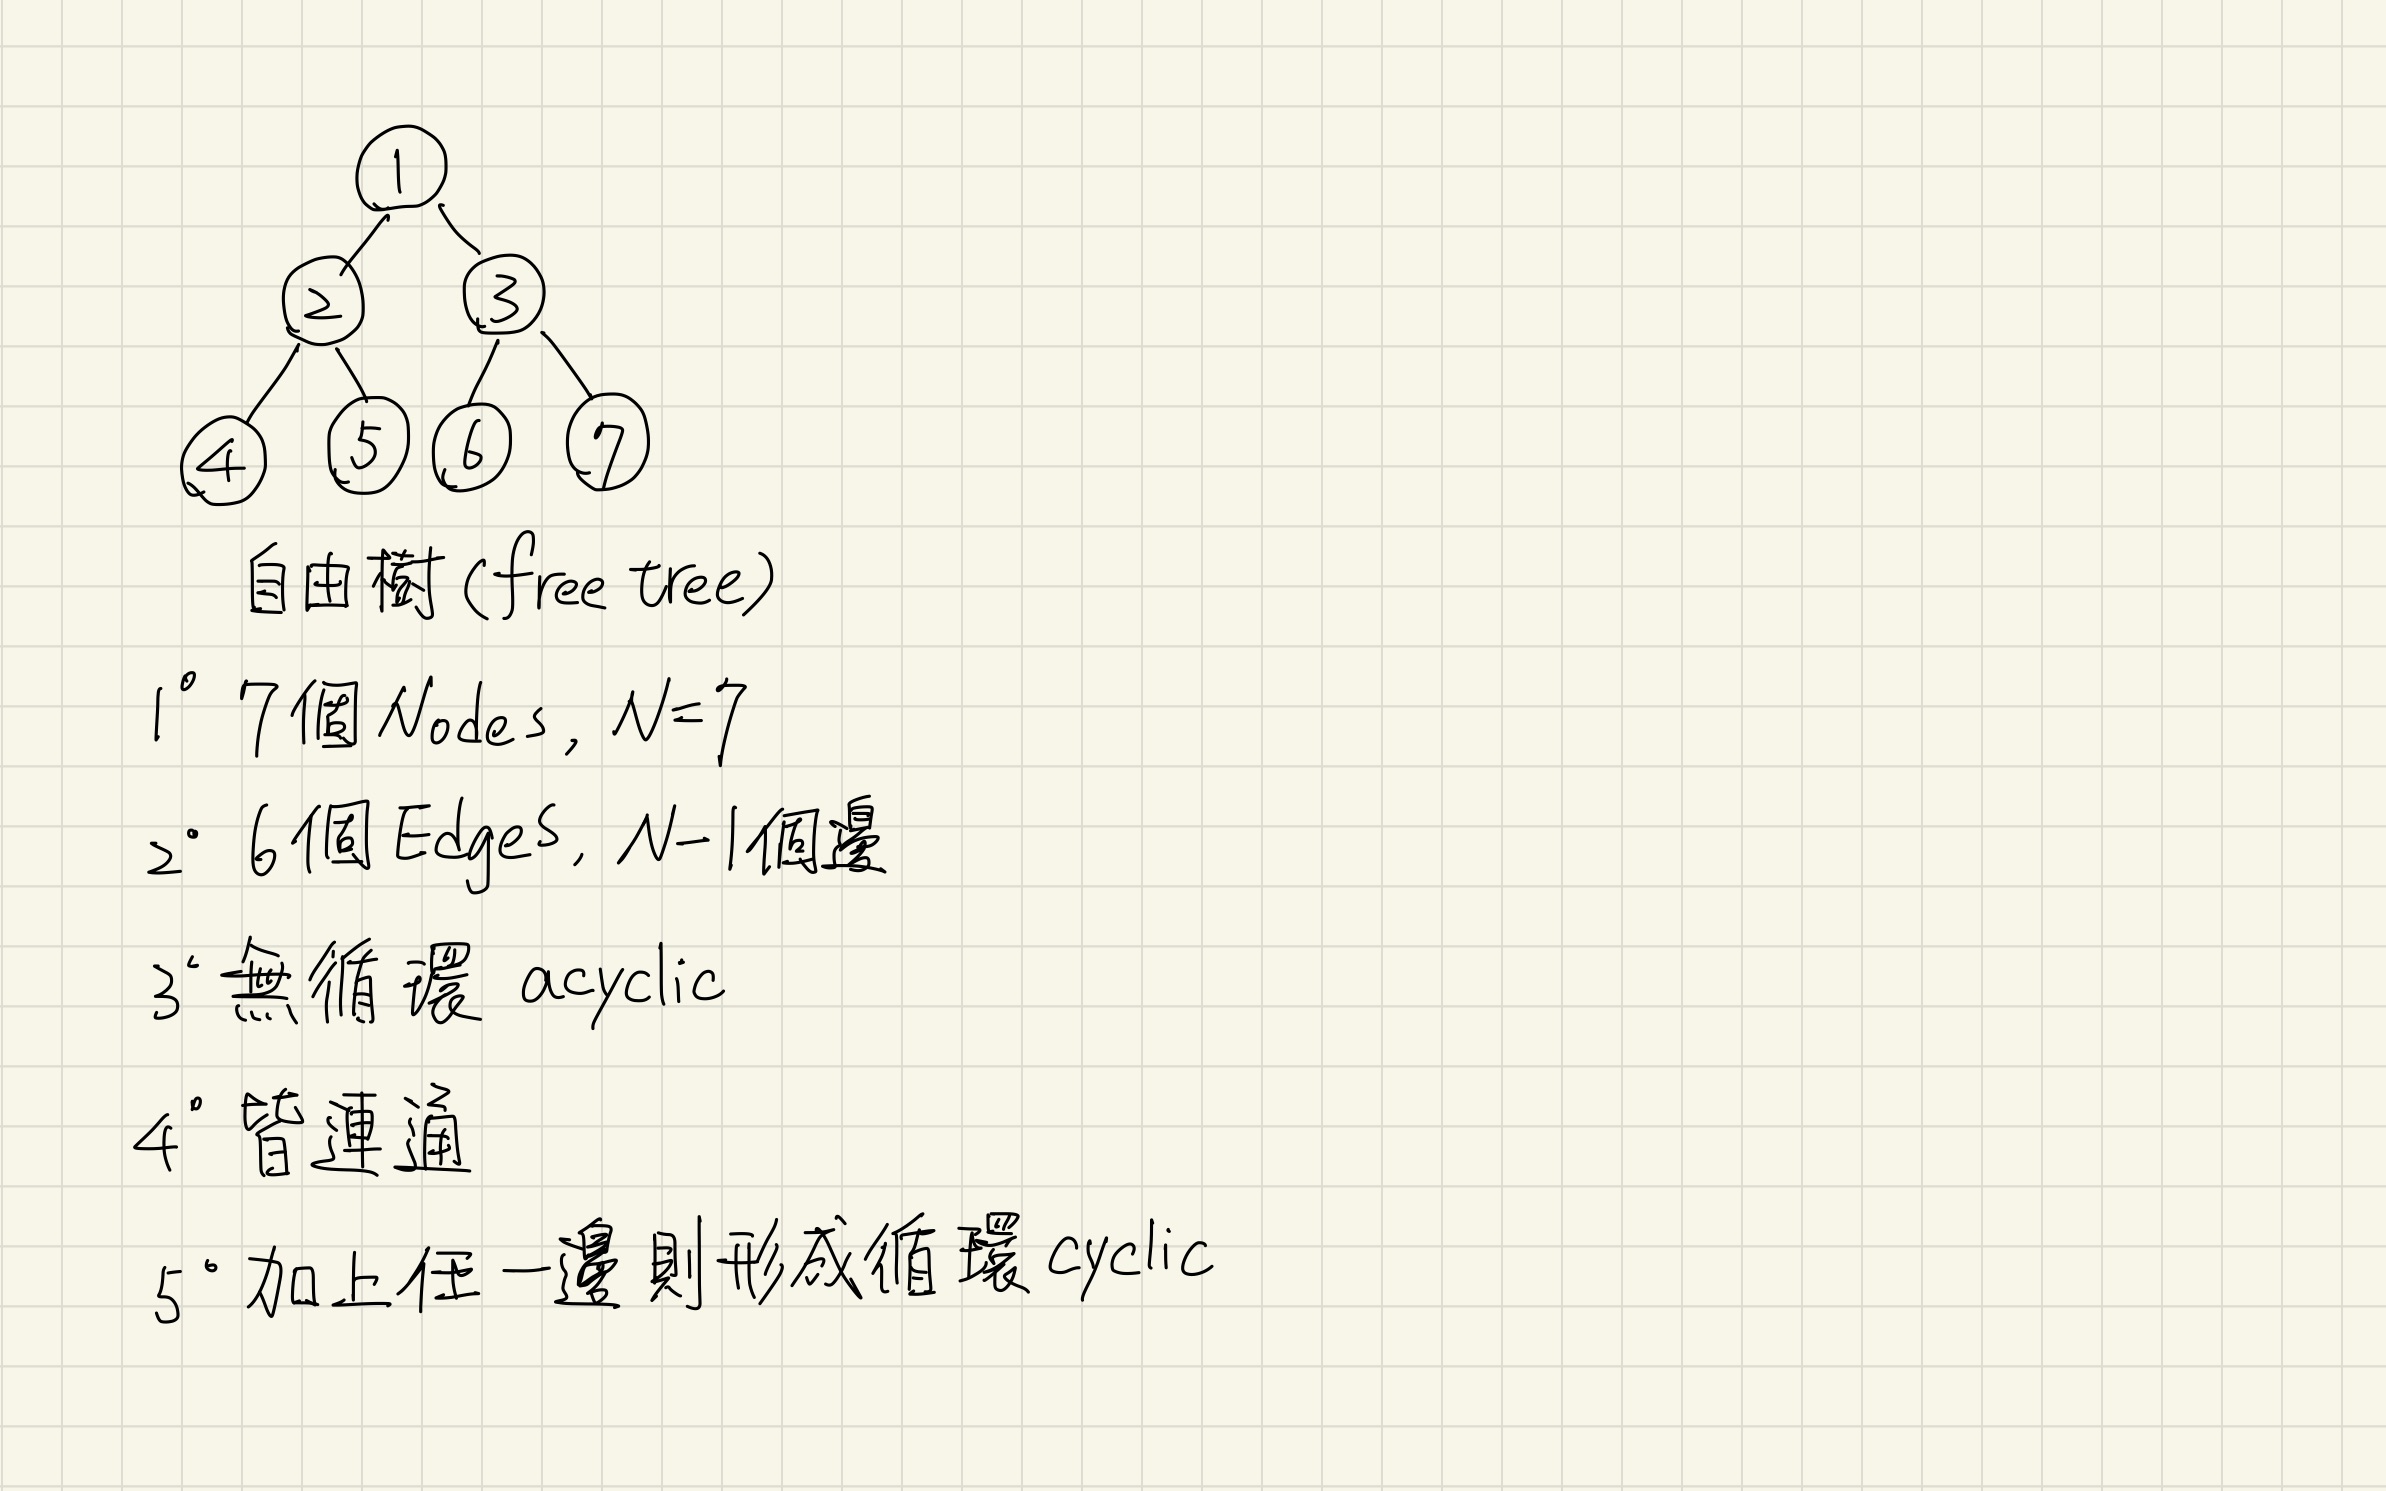 1
2 3
4 5 6 7
自由樹(free tree)
1° 7個Nodes, N=7
2° 6個Edges, N-1個邊
3° 無循環 acyclic
4° 皆連通
5° 加上任一邊則形成循環cyclic